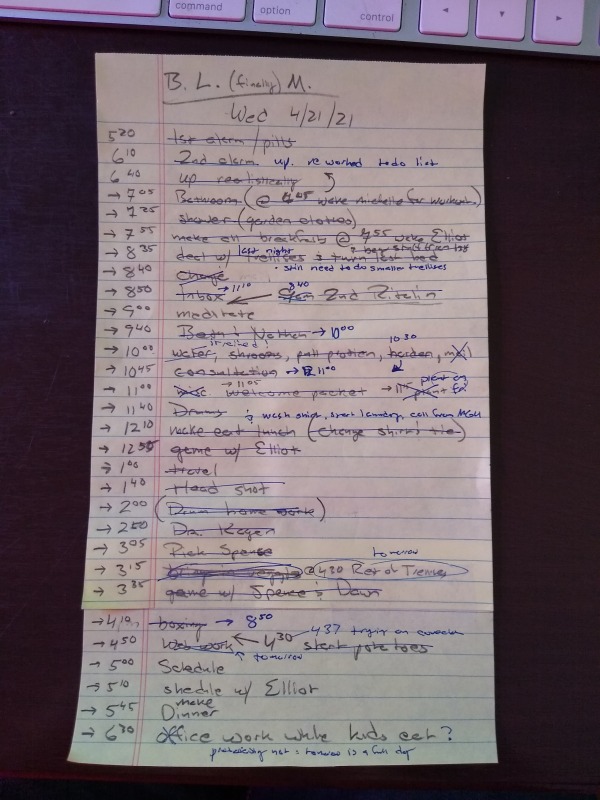 command option control
B. L. (finally) M.
Wed 4/21/21
5 20 1st alarm / pills
6 10 2nd alarm up. reworked to do list
6 40 up realistically
→ 7 05 Bathroom (@ 7 05 wake Michelle for workout)
→ 7 25 shower (garden clothes)
→ 7 55 make eat breakfast @ 7 55 wake Elliot
last night
→ 8 35 deal w/ trellises & turn last bed
→ 8 40 change • still need to do smaller trellises
→ 8 50 Inbox → 11 10 8 40 2nd Ritalin
→ 9 00 meditate
→ 9 40 Nathan → 10 00
10 30
→ 10 00 water, shrooms, pall protien, harden,
→ 10 45 consultation → 11 00
→ 11 00 misc → 11 05 welcome packet → 11 15
→ 11 40 Drums & wash ships, start laundry, call from
→ 12 10 make eat lunch (change shirt & tie)
→ 12 50 game w/ Elliot
→ 1 00 Hotel
→ 1 40 Head shot
→ 2 00 (Dawn home work)
→ 2 50 Dr. Kagen
→ 3 05 Rick Spense
tomorrow
→ 3 15 bring in veggies @ 4 30 Rest of Trellises
→ 3 35 game w/ Spence & Dawn
→ 4 10 boxing → 8 50
→ 4 50 Web work 4 30 start potatoes 437 trying on
↑ tomorrow
→ 5 00 Schedule
→ 5 10 shedule w/ Elliot
→ 5 45 make Dinner
→ 6 30 office work while kids eat?
probably not : tomorrow is a full day